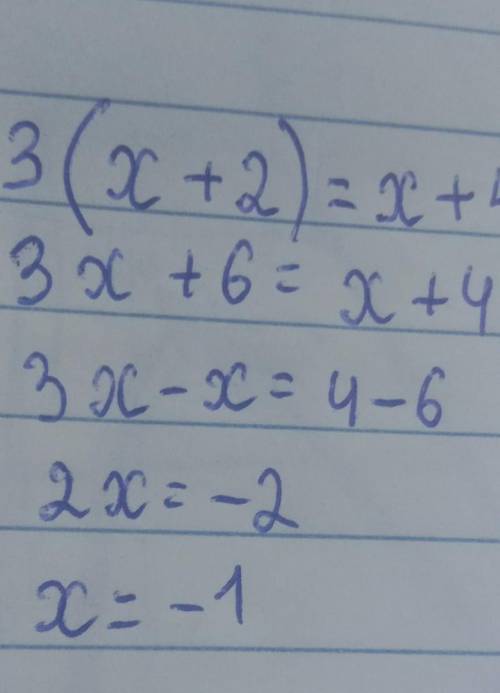 3(x+2)=x+4
3x+6=x+4
3x-x=4-6
2x=-2
x=-1